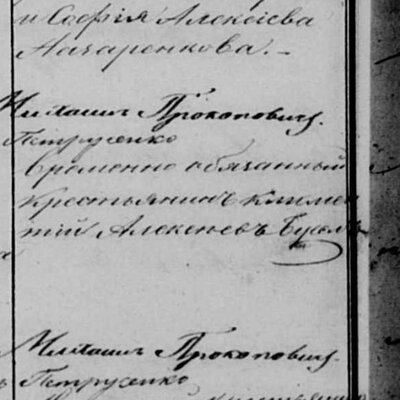 и Софія Алексіева
Назаренкова. –
Михаилъ Прокоповичъ
Петрусенко
временно обязанный
крестьянинъ Климен
тій Алексіевъ
Михаилъ Прокоповичъ
Петрусенко